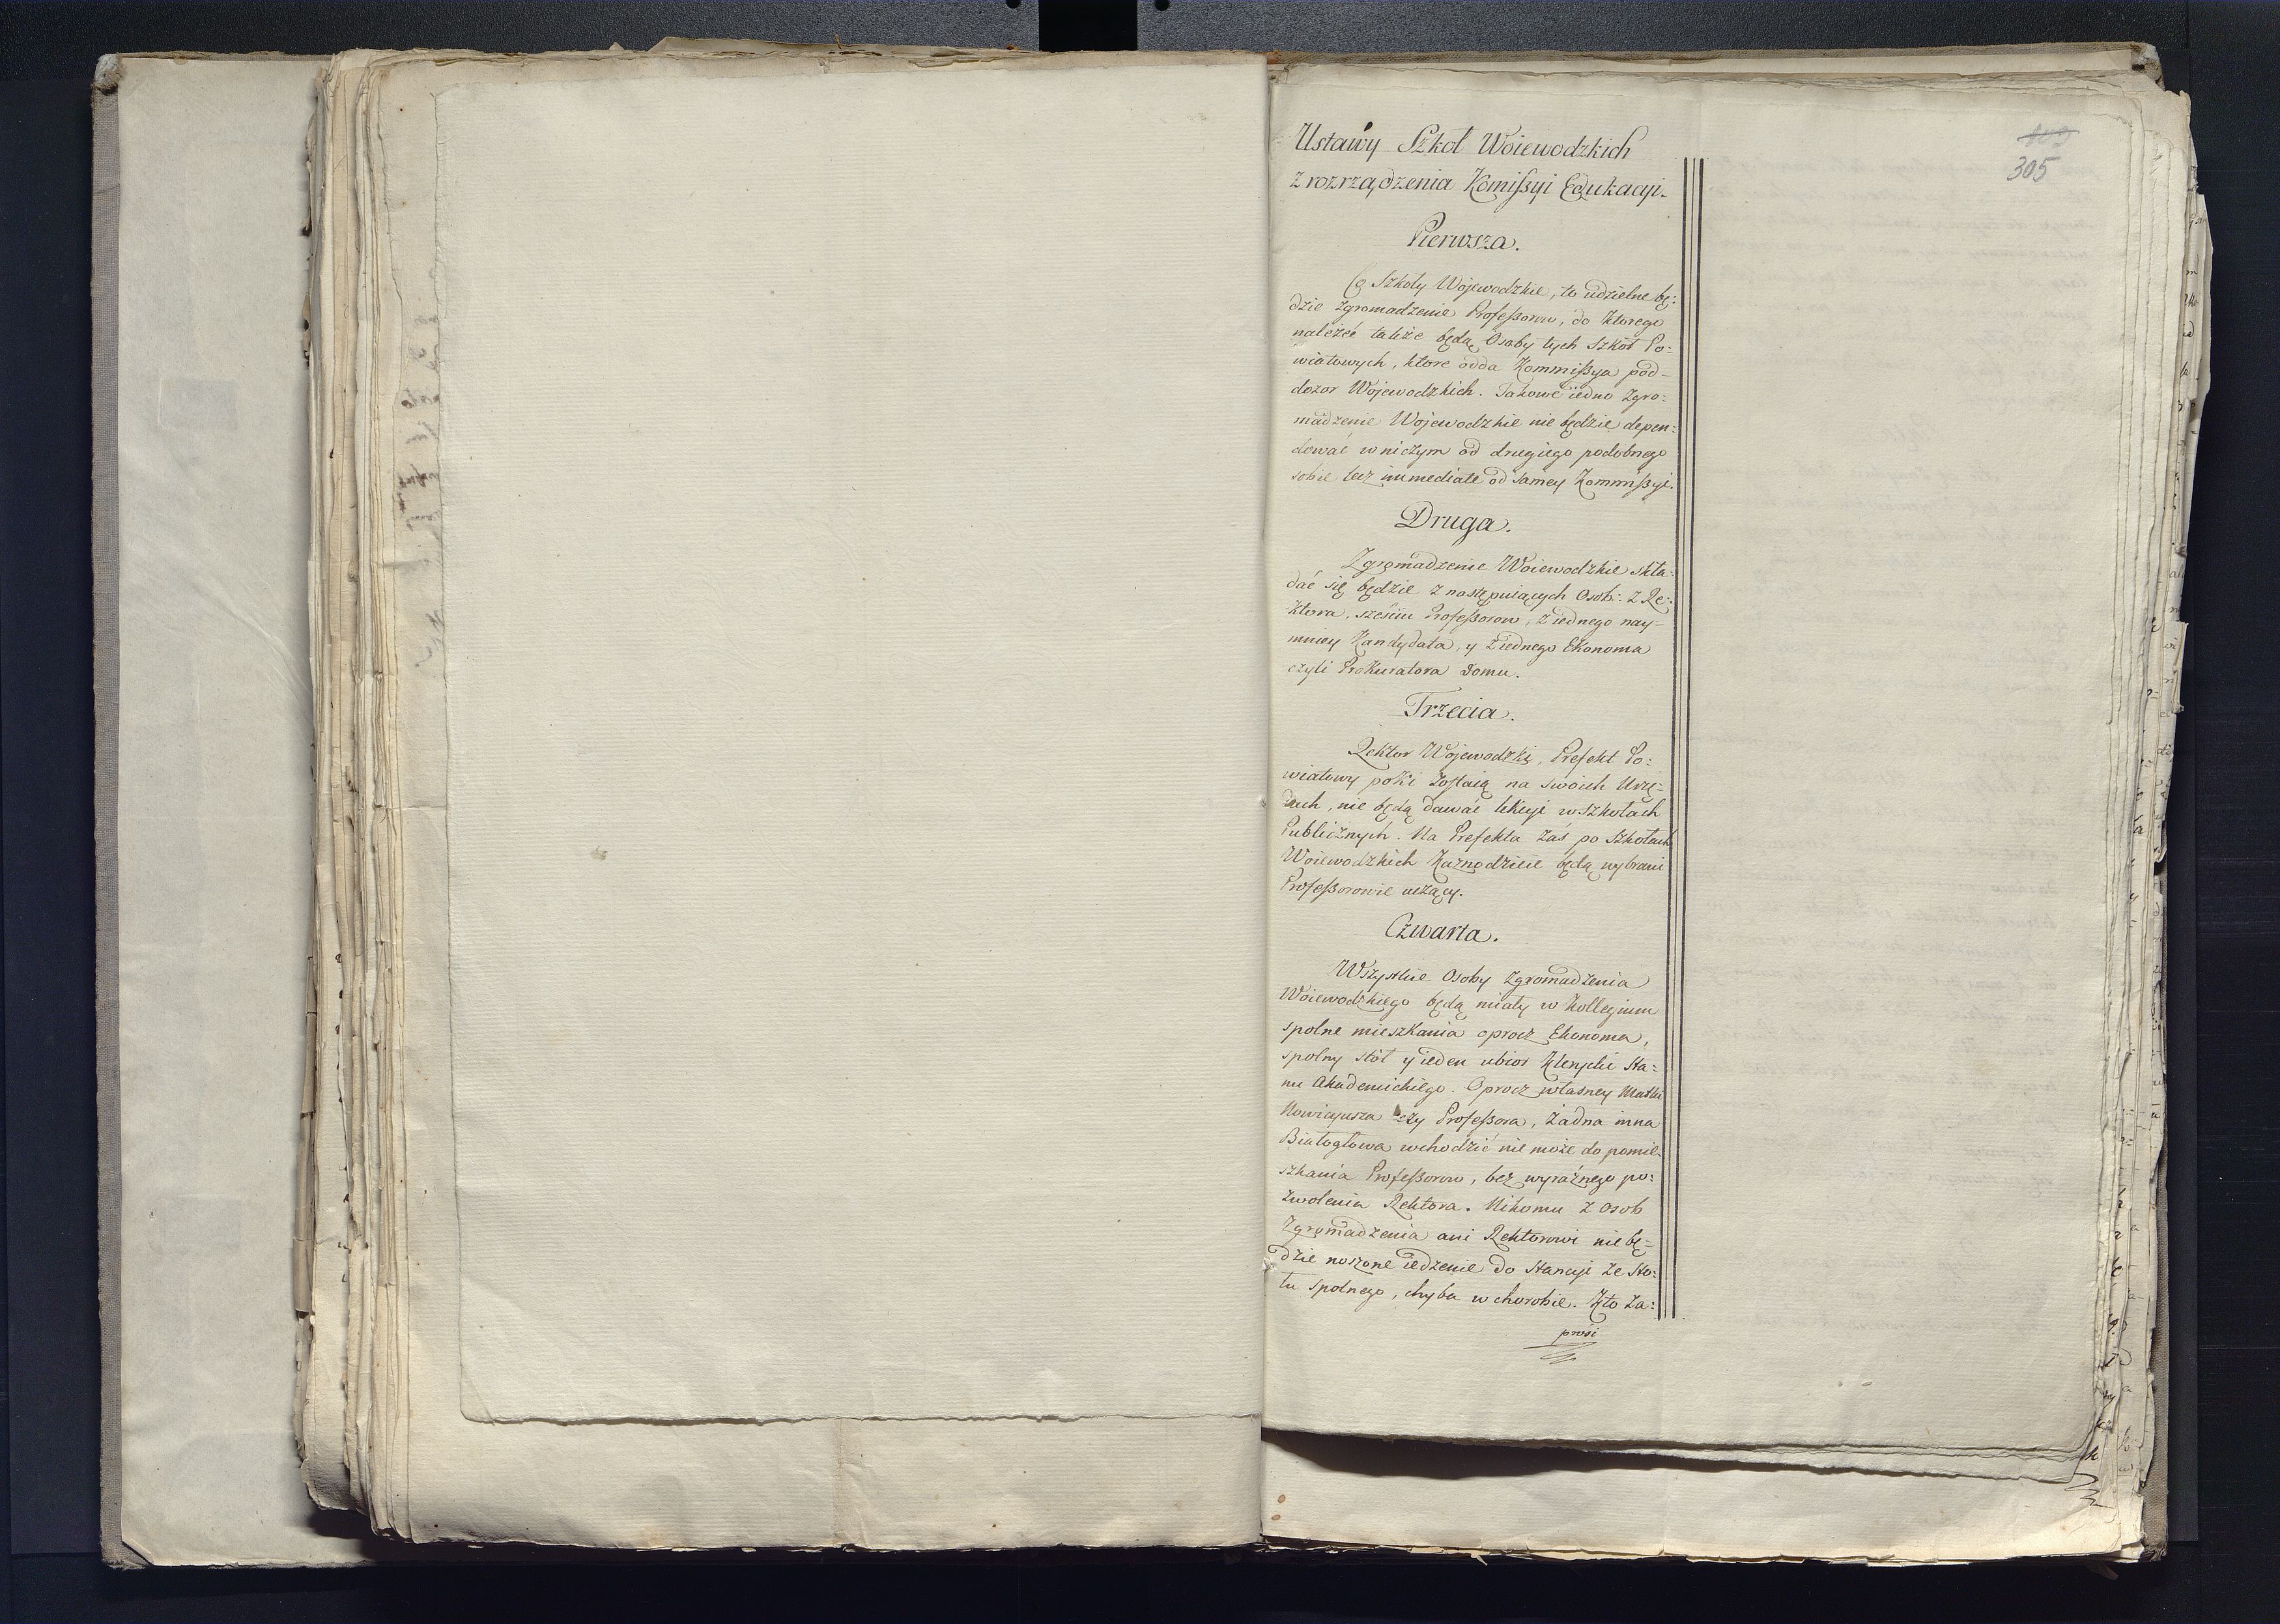 409
305
Ustawy Szkoł Woiewodzkich
z rozrządzenia Komissyi Edukacyi.
Pierwsza.
Co Szkoły Wojewodzkie, to udzielne bę:
dzie zgromadzenie Professorow, do ktorego
należeć także będą Osoby tych Szkół Po:
wiatowych, ktore odda Kommissya pod
dozor Wojewodzkich. Takowe iedno Zgro:
madzenie Wojewodzkie nie będzie depen:
dować w niczym od drugiego podobnego
sobie lecz immediate od samey Kommissyi.
Druga.
Zgromadzenie Woiewodzkie skła:
dać się będzie z następuiących Osob: z Re:
ktora, sześciu Professorow, z iednego nay-
mniey Kandydata, y z iednego Ekonoma
czyli Prokuratora Domu.
Trzecia.
Rektor Wojewodzki, Prefekt Po:
wiatowy poki zostaią na swoich Urzę-
dach, nie będą dawać lekcyi w Szkołach
Publicznych. Na Prefekta zaś po Szkołach
Woiewodzkich Kaznodzieie będą wybrani
Professorowie uczący.
Czwarta.
Wszystkie Osoby Zgromadzenia
Woiewodzkiego będą miały w Kollegium
spolne mieszkania oprocz Ekonoma,
spolny stół y ieden ubior Xięzki Sta:
nu Akademickiego. Oprocz własney Matki
Nowicyusza czy Professora, żadna inna
Białogłowa wchodzić nie może do pomie-
szkania Professorow, bez wyraźnego po:
zwolenia Rektora. Nikomu z Osob
Zgromadzenia ani Rektorowi nie bę=
dzie noszone iedzenie do Stancyi ze Sto:
łu spolnego, chyba w chorobie. Kto za:
prosi